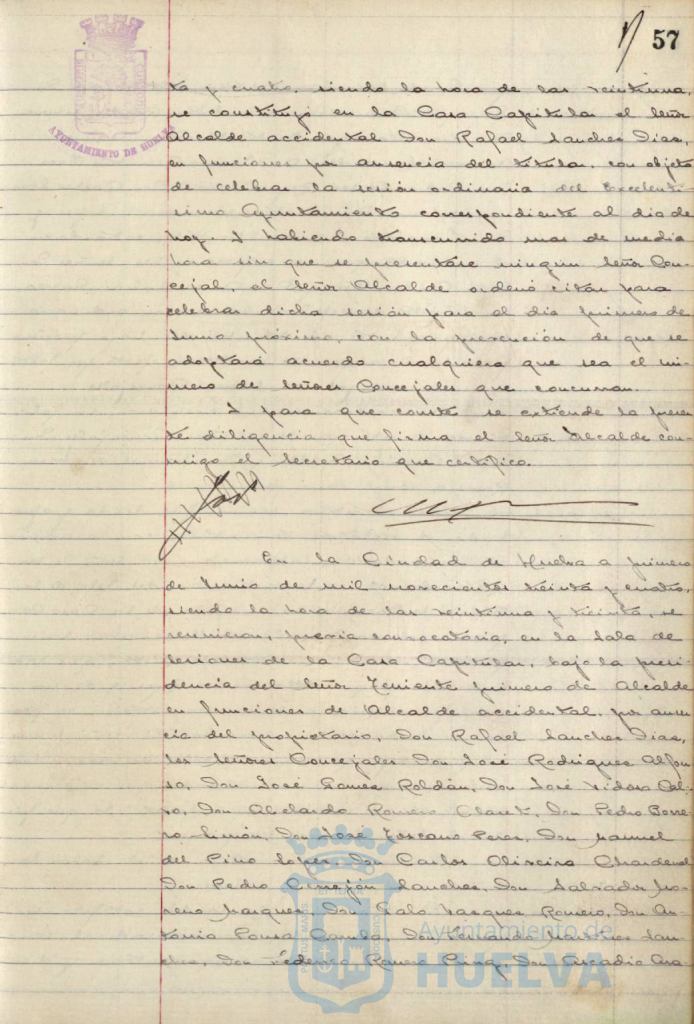 57
AYUNTAMIENTO DE HUELVA
ta y cuatro, siendo la hora de las veintiuna,
se constituyó en la Casa Capitular el Señor
Alcalde accidental Don Rafael Sanchez Diaz,
en funciones por ausencia del titular, con objeto
de celebrar la sesión ordinaria del Excelentí
simo Ayuntamiento correspondiente al dia de
hoy. Y habiendo transcurrido mas de media
hora sin que se presentase ningún Señor Con-
cejal, el Señor Alcalde ordenó citar para
celebrar dicha sesión para el dia primero de
Junio próximo, con la prevención de que se
adoptará acuerdo cualquiera que sea el nú-
mero de Señores Concejales que concurran.
Y para que conste se extiende la presen
te diligencia que firma el Señor Alcalde con-
migo el Secretario que certifico.
En la Ciudad de Huelva a primero
de Junio de mil novecientos treinta y cuatro,
siendo la hora de las veintiuna y treinta, se
reunieron, previa convocatoria, en la Sala de
Sesiones de la Casa Capitular, bajo la presi-
dencia del Señor Teniente primero de Alcalde
en funciones de Alcalde accidental, por ausen
cia del propietario, Don Rafael Sanchez Diaz,
los Señores Concejales Don José Rodriguez Alfon
so, Don José Gomez Roldán, Don José
Don Abelardo Romero Claret, Don Pedro Borre-
ro Limón, Don José Toscano Perez, Don Manuel
del Pino Lopez, Don Carlos Oliveira Chardenal
Don Pedro Cerrejón Sanchez, Don Salvador Mo-
reno Marquez, Don Galo Vazquez Romero, Don An-
tonio Ponce Don Fernando San-
chez, Don Federico Romero Don Arcadio Ara-
Ayuntamiento de
HUELVA